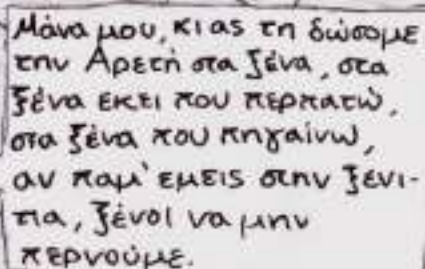 Μάνα μου, κι ας τη δώσομε
την Αρετή στα ξένα, στα
ξένα εκεί που περπατώ,
στα ξένα που πηγαίνω,
αν παμ' εμείς στην ξενι-
τιά, ξένοι να μην
περνούμε.